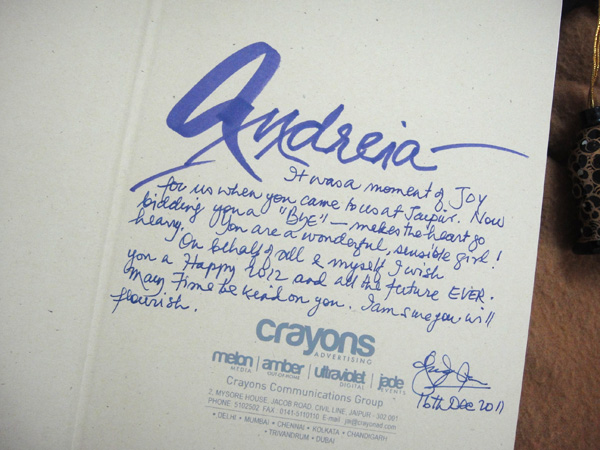 Andreia
It was a moment of JOY
for us when you came to us at Jaipur. Now
bidding you a "BYE" - makes the heart go
heavy. You are a wonderful, sensible girl!
On behalf of all & myself I wish
you a Happy 2012 and all the future EVER.
May Time be kind on you. I am sure you will
flourish.
crayons
ADVERTISING
melon MEDIA | amber OUT-OF-HOME | ultraviolet DIGITAL | jade EVENTS
Crayons Communications Group
2, MYSORE HOUSE, JACOB ROAD, CIVIL LINE, JAIPUR - 302 001
PHONE: 5102502 FAX : 0141-5110110 E-mail : jai@crayonad.com
• DELHI • MUMBAI • CHENNAI • KOLKATA • CHANDIGARH
• TRIVANDRUM • DUBAI
16th Dec 2011